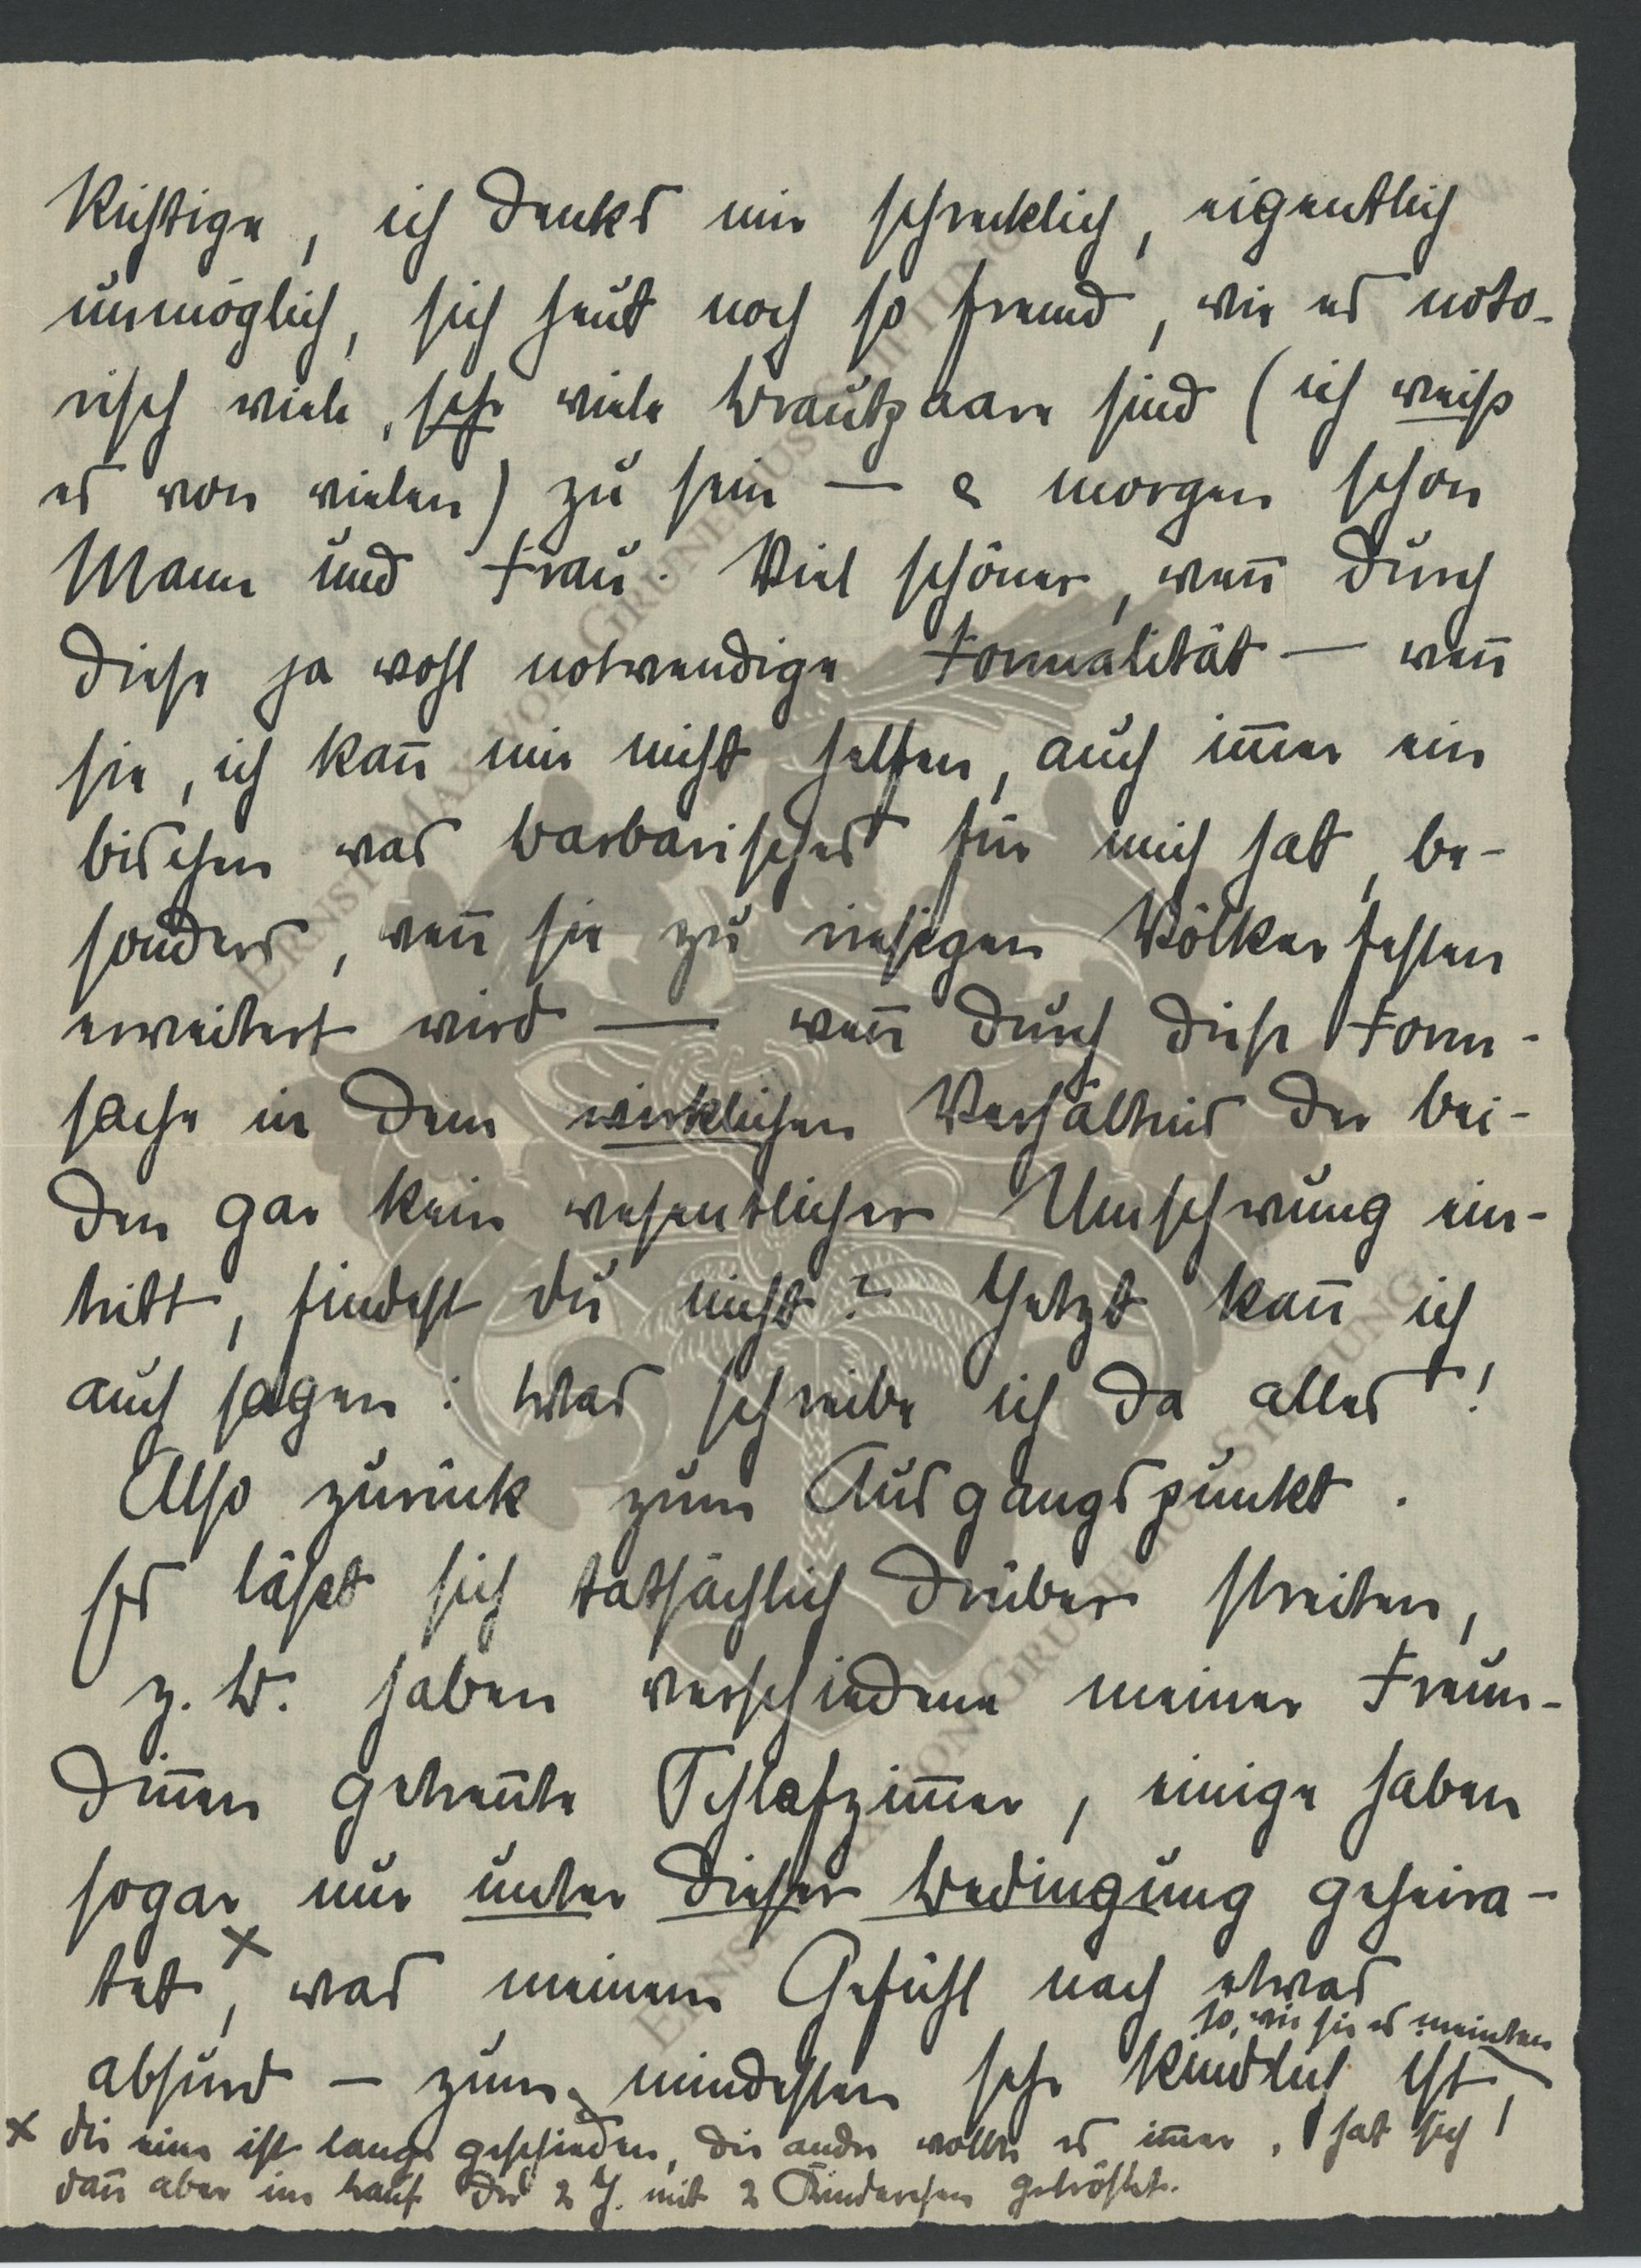 Richtige, ich denks mir schrecklich, eigentlich
unmöglich, sich heut noch so fremd, wie es noto-
risch viele, sehr viele Brautpaare sind (ich weiß
es von vielen) zu sein — & morgen schon
Mann und Frau. Viel schöner, weñ durch
diese ja wohl notwendige Formalität — weñ
sie, ich kañ mir nicht helfen, auch im̅er ein
bischen was barbarisches für mich hat, be-
sonders, weñ sie zu riesigen Völkerfesten
erweitert wird — weñ durch diese Form-
sache in dem wirklichen Verhältnis der bei-
den gar kein wesentlicher Umschwung ein-
tritt, findest du nicht? Jetzt kañ ich
auch sagen: was schreibe ich da alles!
Also zurück zum Ausgangspunkt.
Es läßt sich tatsächlich drüber streiten,
z. B. haben verschiedene meiner Freun-
diñen getreñte Schlafzim̅er, einige haben
sogar nur unter dieser Bedingung geheira-
tet x, was meinem Gefühl nach etwas
so, wie sie es meinten
absurd — zum mindesten sehr kindlich ist!
x die eine ist lange geschieden, die andre wollte es im̅er, hat sich
dañ aber im Lauf der 2 J. mit 2 Kinderchen getröstet.
ERNST MAX VON GRUNELIUS STIFTUNG
ERNST MAX VON GRUNELIUS STIFTUNG